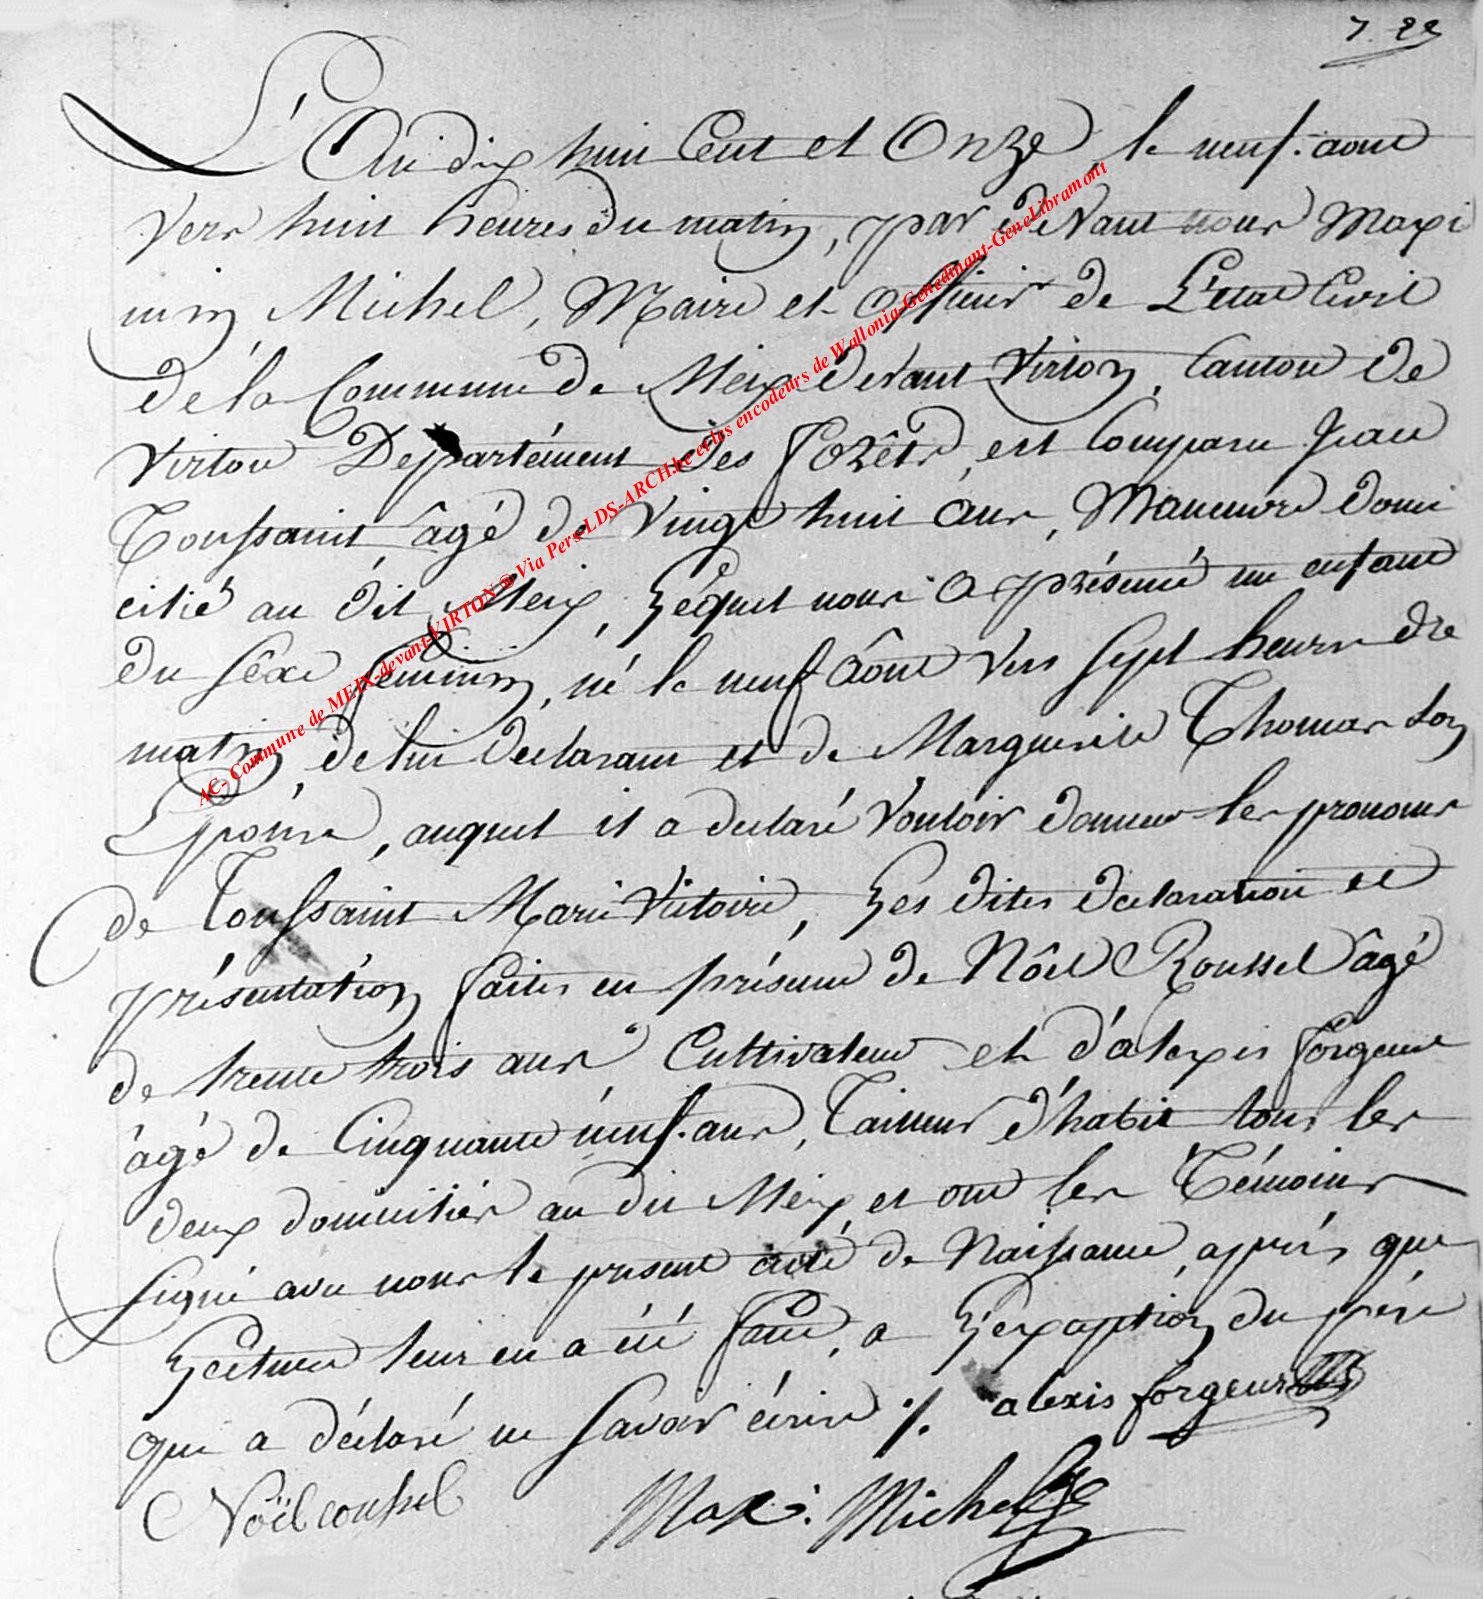 7. 22
L'An dix huit Cent et Onze, le neuf. aout
Vers huit heures du matin, par devant nous Maxi
min Michel, Maire et officier de L'etat Civil
de la Commune de Meix devant Virton, Canton de
Virton Departément des forêts, est Comparu Jean
Toussaint, âgé de Vingt huit ans, Manœuvre domi
cilié au dit Meix, Lequel nous a présenté un enfant
du séxe féminin, né le neuf Aôut Vers Sept heures de
matin, de lui declarant et de Marguerite Thomas Son
Epouse, auquel il a declaré Vouloir donner les prenoms
de Toussaint Marie Victoire, Les dites declaration et
présentation faites en présence de Nôel Roussel âgé
de trente trois ans Cultivateur et d'alexis forgeur
âgé de Cinquante neuf. ans, Tailleur d'habit tous les
deux domiciliés au dit Meix, et ont les Témoins
Signé avec nous le present acte de Naissance, aprés que
Lecture leur en a été faite, a L'exception du pére
qui a déclaré ne Savoir écrire ./. alexis forgeur
Noël roussel Max: Michel
AC- Commune de MEIX-devant-VIRTON @ Via Pers-LDS-ARCH.be et les encodeurs de Wallonia-Genedinant-GeneLibramont